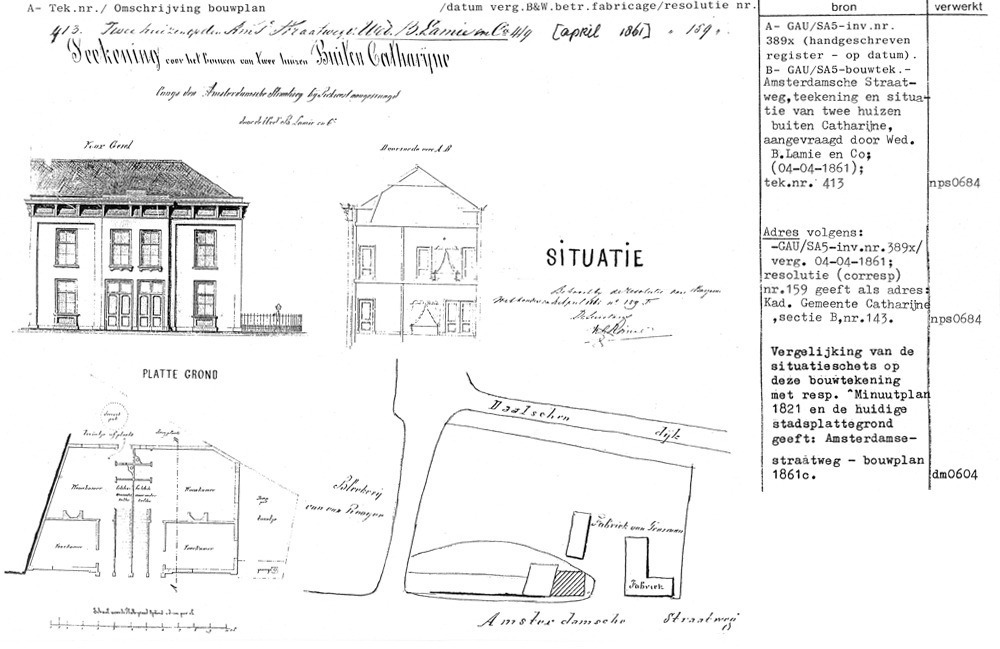 A- Tek.nr./ Omschrijving bouwplan
/datum verg.B&W.betr.fabricage/resolutie nr.
413. Twee huizen op den Amst Straatweg v. Wed. B. Lamie en Co 4/9 [april 1861] " 159 "
Teekening voor het bouwen van twee huizen Buiten Catharijne
langs den Amsterdamsche Straatweg bij aangevraagd
door de Wed. B. Lamie en Co
Voor Gevel
Doorsnede over A B
SITUATIE
Behoort bij de resolutie van
april 1861 no 159
De Secretaris
PLATTE GROND
Woonkamer
Woonkamer
Voorkamer
Voorkamer
Bleekerij
van van
Daalschen dijk
Fabriek van
Fabriek
Amsterdamsche Straatweg
bron
verwerkt
A- GAU/SA5-inv.nr.
389x (handgeschreven
register - op datum).
B- GAU/SA5-bouwtek.-
Amsterdamsche Straat-
weg,teekening en situa-
tie van twee huizen
buiten Catharijne,
aangevraagd door Wed.
B.Lamie en Co;
(04-04-1861);
tek.nr. 413
nps0684
Adres volgens:
-GAU/SA5-inv.nr.389x/
verg. 04-04-1861;
resolutie (corresp)
nr.159 geeft als adres:
Kad. Gemeente Catharijne
,sectie B,nr.143.
nps0684
Vergelijking van de
situatieschets op
deze bouwtekening
met resp. "Minuutplan
1821 en de huidige
stadsplattegrond
geeft: Amsterdamse-
straatweg - bouwplan
1861c.
dm0604